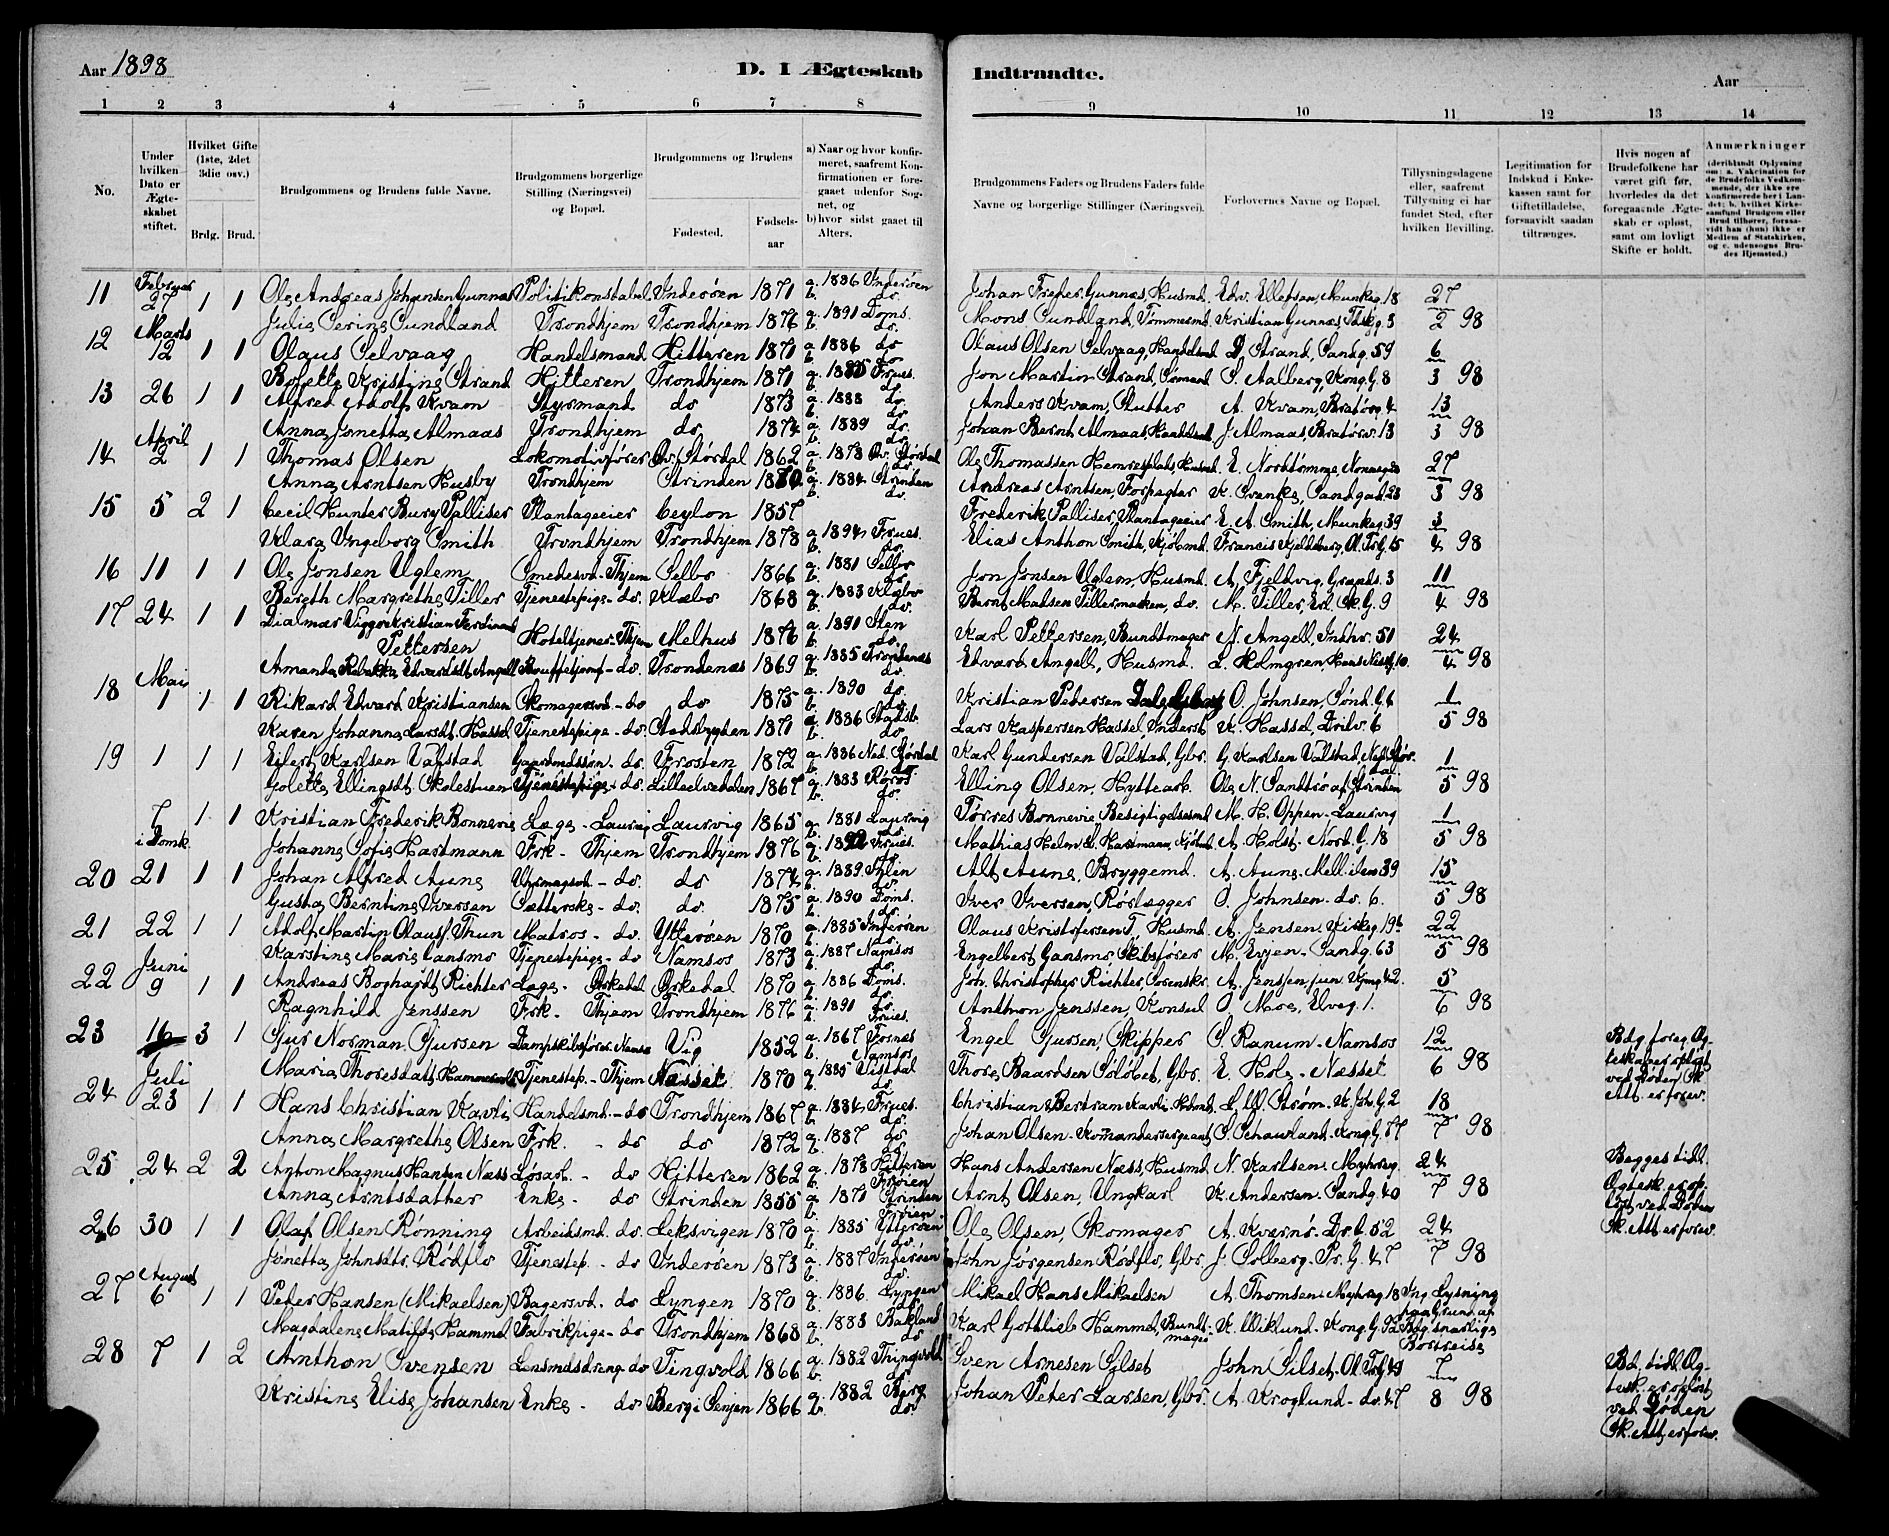 Aar 1898
D. I Ægteskab
Indtraadte.
Aar
1 2 3 4 5 6 7 8 9 10 11 12 13 14
No.
Under hvilken Dato er Ægteskabet stiftet.
Hvilket Gifte (1ste, 2det 3die osv.)
Brdg. Brud.
Brudgommens og Brudens fulde Navne.
Brudgommens borgerlige Stilling (Næringsvei) og Bopæl.
Brudgommens og Brudens
Fødested. Fødsels-aar
a) Naar og hvor konfirmeret, saafremt Konfirmationen er foregaaet udenfor Sognet, og
b) hvor sidst gaaet til Alters.
Brudgommens Faders og Brudens Faders fulde Navne og borgerlige Stillinger (Næringsvei).
Forlovernes Navne og Bopæl.
Tillysningsdagene eller, saafremt Tillysning ei har fundet Sted, efter hvilken Bevilling.
Legitimation for Indskud i Enkekassen samt for Giftetilladelse, forsaavidt saadan tiltrænges.
Hvis nogen af Brudefolkene har været gift før, hvorledes da det foregaaende Ægteskab er opløst, samt om lovligt Skifte er holdt.
Anmærkninger
11 Februar 27 1 1 Ole Andreas Johansen Gunnæs Politikonstabel Inderøen 1871 a. 1886 Inderøen b. do. Johan Freder. Gunnæs, Husmd. Edv. Ellefsen, Munkeg. 18 27
Julie Serine Sundland Trondhjem Trondhjem 1876 a. 1891 Doms. b. do. Mons Sundland, Tømmermd. Kristian Gunnæs, 3 2 98
12 Marts 12 1 1 Olaus Selvaag Handelsmand Hitteren 1871 a 1886 do b. do Olaus Olsen Selvaag, Handelsmd D. Strand, Sandg. 59 6
Bolette Kristine Strand Hitteren Trondhjem 1871 a. 1885 Frues. b. do. Jon Martion Strand, Sømand S. Aalberg, Kong. G. 8 3 98
13 26 1 1 Alfred Adolf Kvam Styrmand do 1873 a. 1888 do b. do. Anders Kvam, Slutter A. Kvam, Bratørg. 4 13
Anna Jonetta Almaas Trondhjem do. 1874 a. 1889 do. b. do. Johan Bernt Almaas, J. Almaas, Bratørv. 13 3 98
14 April 2 1 1 Thomas Olsen Lokomotivfører Øv. Størdal 1862 a. 1878 Øv. Størdal b. do. Ole Thomassen Husmd. E. Nordtømme, 27
Anna Arntsen Husby Trondhjem Strinden 1870 a. 1884 Strinden b. do. Andreas Arntsen, Forpagter K. Svenke, Sandgad. 23 3 98
15 5 2 1 Cecil Hunter Bury Palliser Plantageeier Ceylon 1857 Frederik Palliser, Plantageeier E. A. Smith, Munkeg. 39 3
Klara Ingeborg Smith Trondhjem Trondhjem 1878 a 1894 Frues. b. do. Elias Anthon Smith, Kjøbmd. Francis Kjeldsberg, Ol. Trf. 15 4 98
16 11 1 1 Ole Jonsen Uglem Smedesvd. Thjem Selbo 1866 a. 1881 Selbo b. do Jon Jonsen Uglem, Husmd. A. Fjeldvig, Grænds. 3 11
Bereth Margrethe Tiller Tjenestepige - do. Klæbo 1868 a. 1883 Klæbo b. do. Bernt Madsen Tiller do. M. Tiller, Erl. Sk. G. 9 4 98
17 24 1 1 Dialmar Viggo Kristian Ferdinand
Pettersen Hoteltjener Thjem Melhus 1876 a. 1891 Sten b. do. Karl Pettersen, Bundtmager N. Angell, Indhr. 51 24
Amanda Rebekka Edvardsdt. Angell do. Trondenæs 1869 a. 1885 Trondenæs b. do. Edvard Angell, Husmd. L. Holmgren, 10. 4 98
18 Mai 1 1 1 Rikard Edvard Kristiansen Skomagersvd. - do do 1875 a. 1890 do. b. do. Kristian Pedersen O. Johnsen, Sønd. G. 6 1
Karen Johanna Larsdt. Hassel Tjenestepige - do. Stadsbygden 1871 a 1886 Stadsb. b. do. Lars Kaspersen Hassel, Inderst K. Hassel, Ørilv. 6 5 98
19 1 1 1 Eilert Karlsen Valstad Gaardmdssøn. do. Frosten 1872 a. 1886 Ned. Størdal Karl Gundersen Valstad, Gbr. G. Karlsen Valstad, Ned Stør. 1
Golette Ellingsdt. Skolestuen Tjenestepige - do. Lilleelvedalen 1867 a. 1883 Røros b. do. Elling Olsen, Hyttearb. Ole N. Sandtrø af Strinden 5 98
7 i Domk. 1 1 Kristian Frederik Bonnevie Læge - Laurvig Laurvig 1865 a. 1881 Laurvig b. do. Tørres Bonnevie, Besigtigelsesmd M. H. Oppen - Laurvig 1
Johanne Sofie Hartmann Frk - Thjem Trondhjem 1876 a. 1892 Frues. b. do. Mathias Helm L. Hartmann, Kjøbmd. A. Holst - Nord. G. 18 5 98
20 21 1 1 Johan Alfred Aune Uhrmagsvd. - do. do 1874 a. 1889 Ihlen b. do. Alt Aune, Bryggemd. A. Aune - Mell. ilen 39 15
Gusta Berntine Iversen Sætterske - do. do. 1875 a. 1890 Doms. b. do. Iver Iversen, Rørlægger O. Johnsen - do. 6. 5 98
21 22 1 1 Adolf Martin Olausf. Thun Matros - do. Ytterøen 1870 a. 1885 Inderøen b. do. Olaus Kristofersen T, Husmd. A. Jensen - Kirkeg. 19b 22
Karstine Marie Gansmo Tjenestepige - do Namsos 1873 a. 1887 Namsos b. do. Engelbert Gansmo, Skibsfører M. Evjen - Sandg. 63 5 98
22 Juni 9 1 1 Andreas Boghardt Richter Læge - Ørkedal Ørkedal 1870 a 1886 Doms. b. do. Joh. Christopher Richter, Sorenskr. A. Jenssen, jun. Kjøpmg. 42. 5
Ragnhild Jenssen Frk - Thjem Trondhjem 1876 a. 1891 do. b. Frues. Anthon Jenssen, Konsul O. Moe, Elveg. 1. 6 98
23 16 3 1 Sjur Norman Sjursen Dampskibsfører - Namsos Vig 1852 a. 1867 Fosnes b. Namsos Engel Sjursen, Skipper S. Ranum - Namsos 12 Bdg. foreg. Æg-
Marie Thoresdatt. Tjenestep. - Thjem Næsset. 1870 a. 1885 Vistdal b. do. Thore Baardsen Solobet, Gbr. E. Hole - Næsset 6 98 teskaber opløst
ved Døden Sk.
Att. er forev.
24 Juli 23 1 1 Hans Christian Kavli Handelsmd. - do Trondhjem 1867 a. 1884 Frues. b. do. Christian Bertram Kavli, Hdmd. L. W. Strøm - K. Joh. G. 2 18
Anna Margrethe Olsen Frk. - do do 1872 a. 1887 do b. do. Johan Olsen - Komandersergeant S. Schauland - Kong. G. 57 7 98
25 24 2 2 Anton Magnus Hansen Næss Løsarb. - do Hitteren 1862 a. 1878 Hitteren b. Frøien Hans Andersen Næss, Husmd. N. Karlsen - Myhrog. 24 Begges tidl.
Anna Arntsdatter Enke - do Strinden 1855 a. 1871 Strinden b. Frøien Arnt Olsen, Ungkarl K. Andersen - Sandg. 40 7 98 Ægtesk. er op-
løst ved Døden
Sk. Att. er forev.
26 30 1 1 Olaf Olsen Rønning Arbeidsmd. do. Leksvigen 1870 a. 1885 Ytterøen b. do. Ole Olsen, Skomager A. Kvernø - Dr. G. 52 24
Jonetta Johnsdtr. Rødflo Tjenestep. - do Inderøen 1873 a. 1887 Inderøen b. do. John Jørgensen Rødflo, Gbr. J. Solberg - Pr. G. 47 7 98
27 August 6 1 1 Peder Hansen (Mikaelsen) Bagersvd. - do Lyngen 1870 a. 1886 Lyngen b. do. Mikael Hans Mikaelsen A. Thomsen - Myhreg. 18 Ing. Lysning
Magdalena Matilde Hammel Fabrikpige - do Trondhjem 1868 a. 1883 Bakland b. do Karl Gottlieb Hammel, Bundt- K. Wiklund - Kong. G. 92 paa Grund af
mager Bdg. snarlige
Bortreise
28 7 1 2 Anthon Svensen Lensmdsdreng - do Tingvold 1866 a. 1882 Thingvold b. do. Sven Arnesen Silset John Silset - Ol. Trf. 49 7 Bd. tidl. Æg-
Kristine Elise Johansen Enke - do Berg i Senjen 1866 a. 1882 Berg b. do. Johan Peter Larsen, Gbr. A. Kroglund - do. 47 8 98 tesk. er opløst
ved Døden
Sk. Att. er forev.